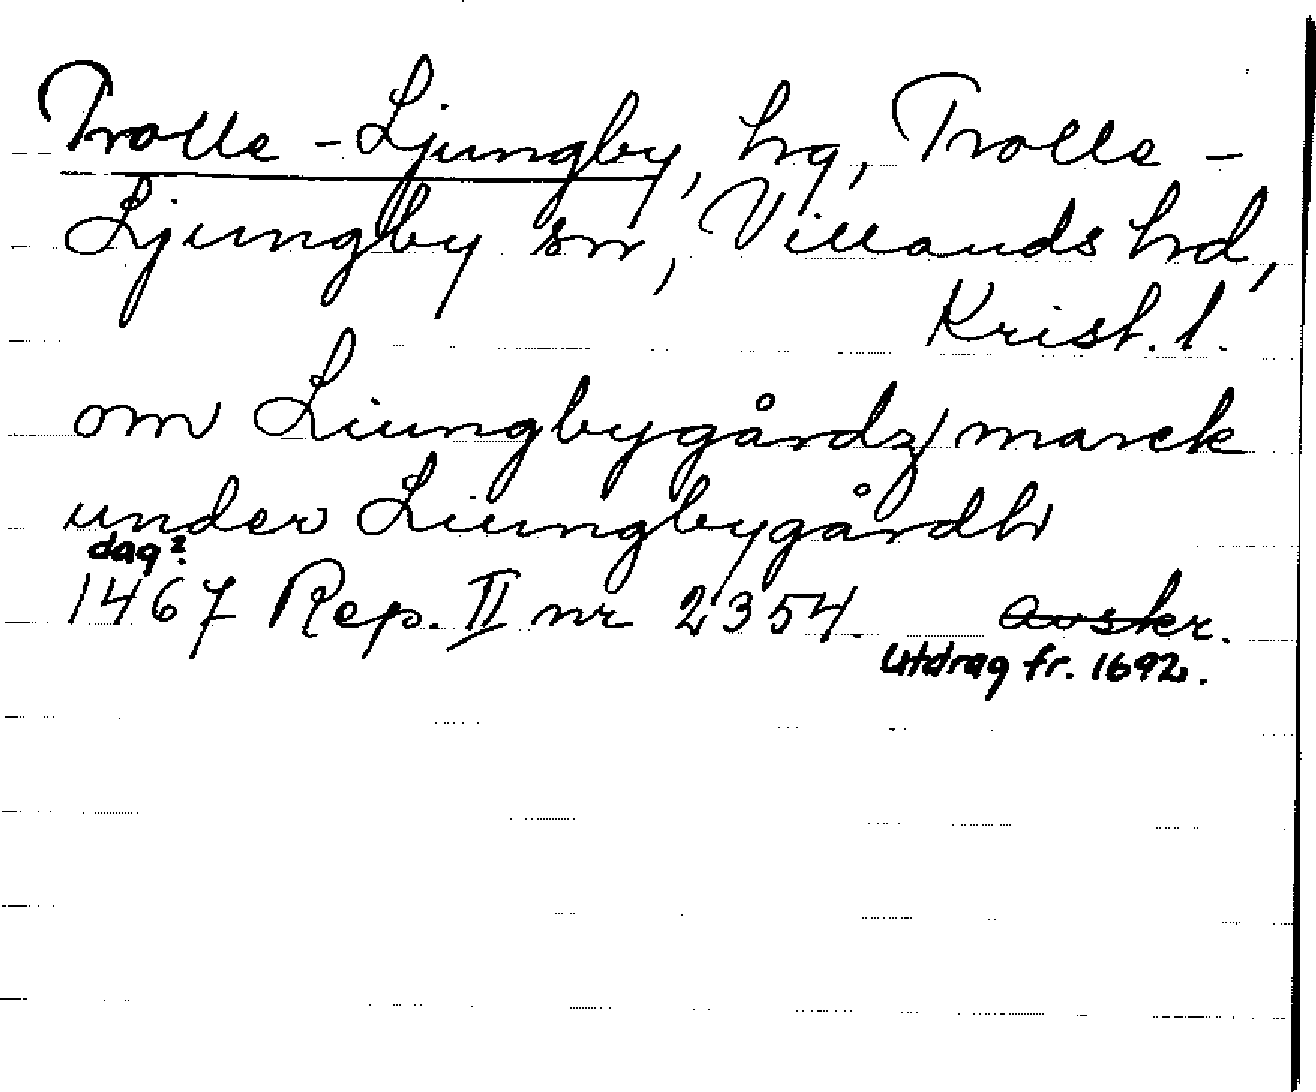 Trolle-Ljungby, hg, Trolle-
Ljungby sn, Villands hd,
Krist. l.
om Liungbygårdz marck
under Liungbygårdh
dag?
1467 Rep. II nr 2354. avskr.
Utdrag fr. 1692.